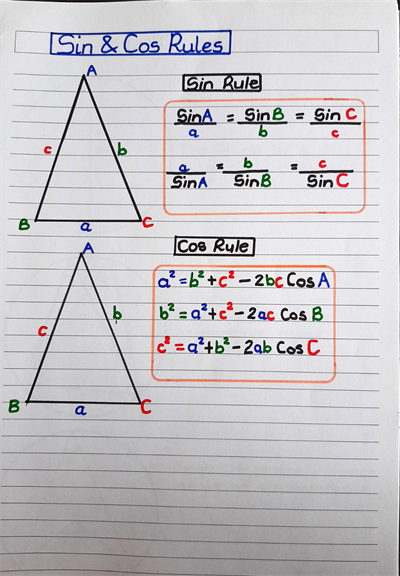 Sin & Cos Rules
A
Sin Rule
SinA/a = SinB/b = Sin C/c
c b
a/SinA = b/SinB = c/Sin C
B a C
Cos Rule
A
a² = b² + c² - 2bc Cos A
b
b² = a² + c² - 2ac Cos B
c
c² = a² + b² - 2ab Cos C
B a C